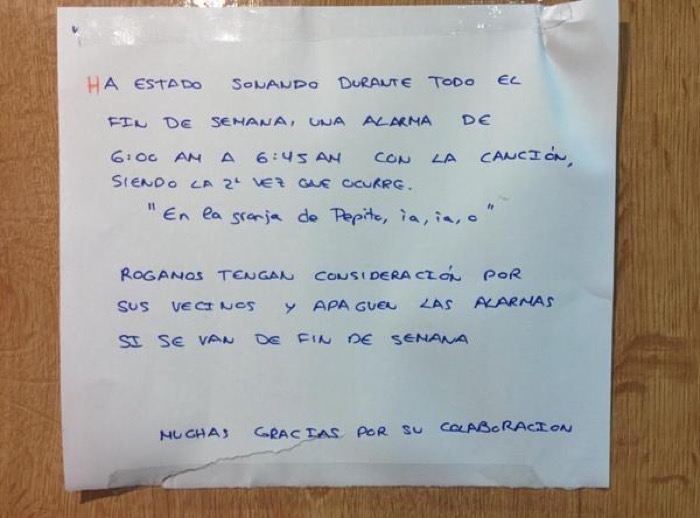 HA ESTADO SONANDO DURANTE TODO EL
FIN DE SEMANA, UNA ALARMA DE
6:00 AM A 6:45 AM CON LA CANCIÓN,
SIENDO LA 2ª VEZ QUE OCURRE.
"En la granja de Pepito, ia, ia, o"
ROGAMOS TENGAN CONSIDERACIÓN POR
SUS VECINOS Y APAGUEN LAS ALARMAS
SI SE VAN DE FIN DE SEMANA
MUCHAS GRACIAS POR SU COLABORACION